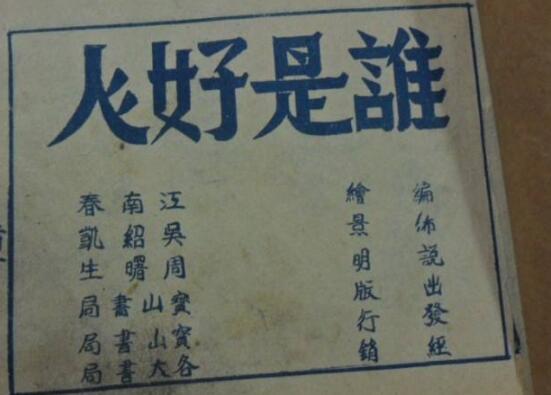 誰是好人
編繪 江南春
佈景 吳紹凱
說明 周曙生
出版 寶山書局
發行 寶山書局
經銷 各大書局